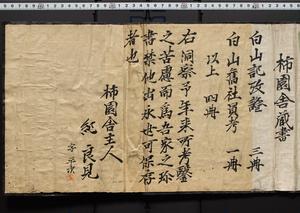 柿園舎蔵書
白山記攷證 三冊
白山舊社員考 一冊
以上 四冊
右洞察予年来所考鑿
之苦慮而為吾家之珎
書禁他出永世可保存
者也
柿園舎主人
良見